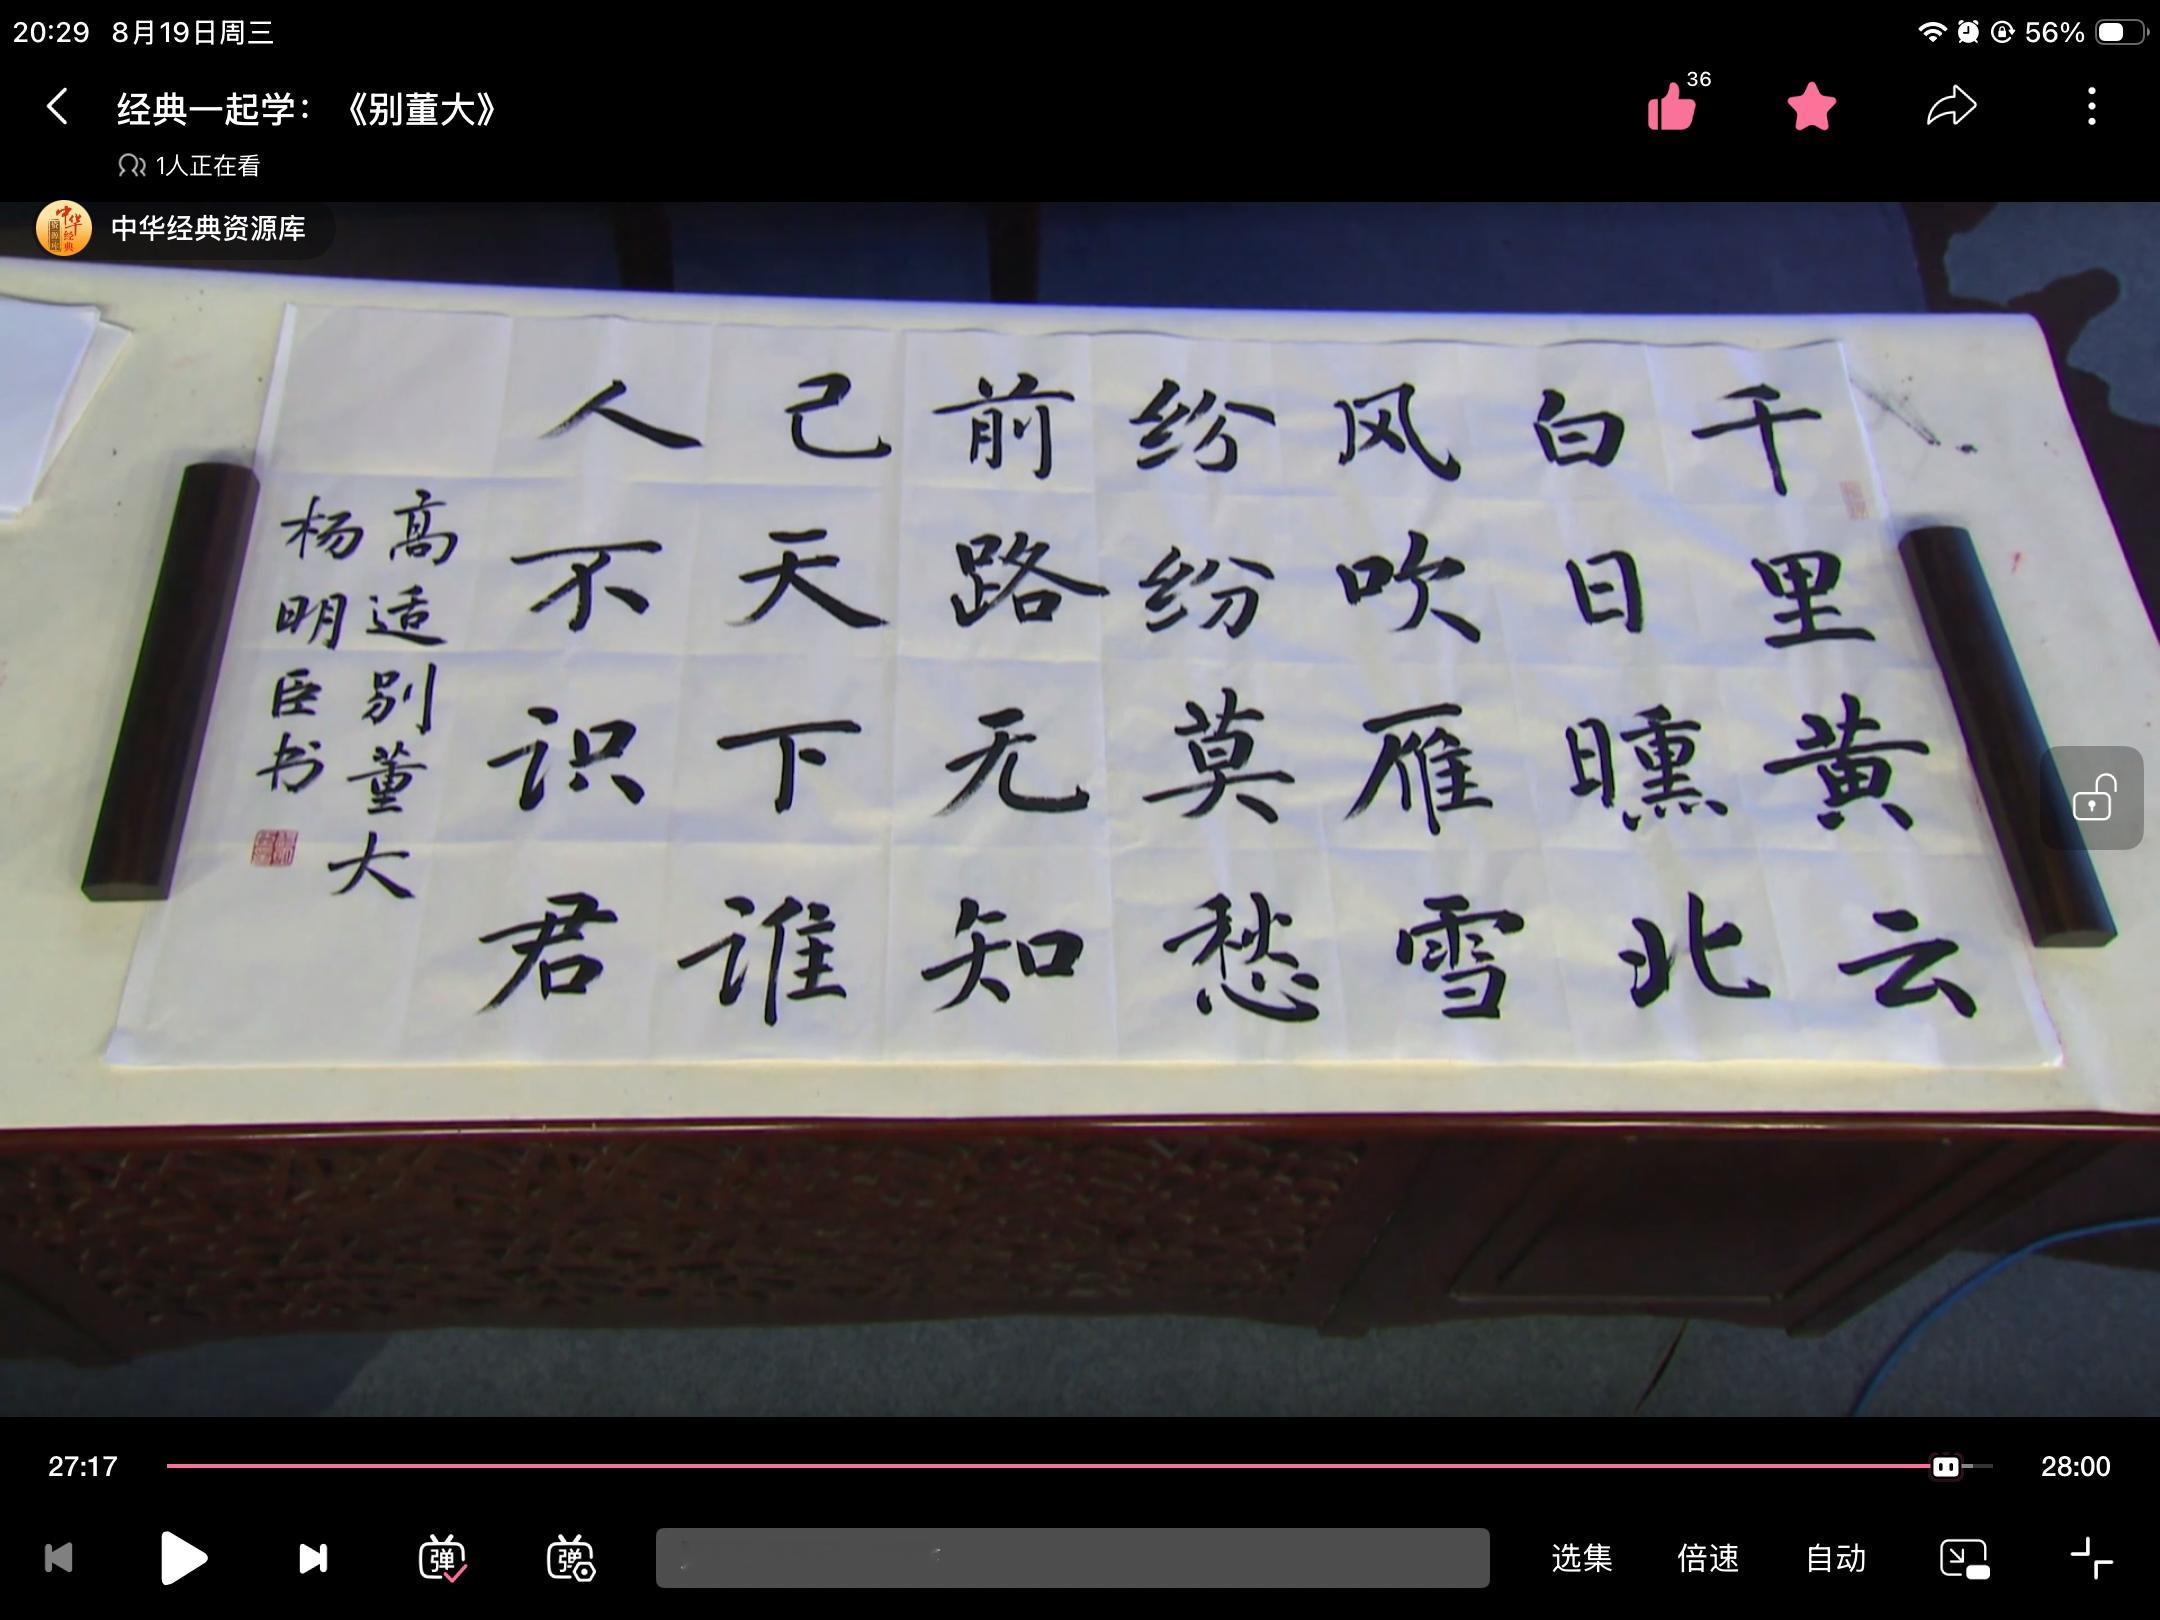 20:29 8月19日周三
56%
经典一起学：《别董大》
36
1人正在看
中华经典资源库
千里黄云
白日曛北
风吹雁雪
纷纷莫愁
前路无知
己天下谁
人不识君
高适别董大
杨明臣书
27:17
28:00
弹
弹
选集
倍速
自动